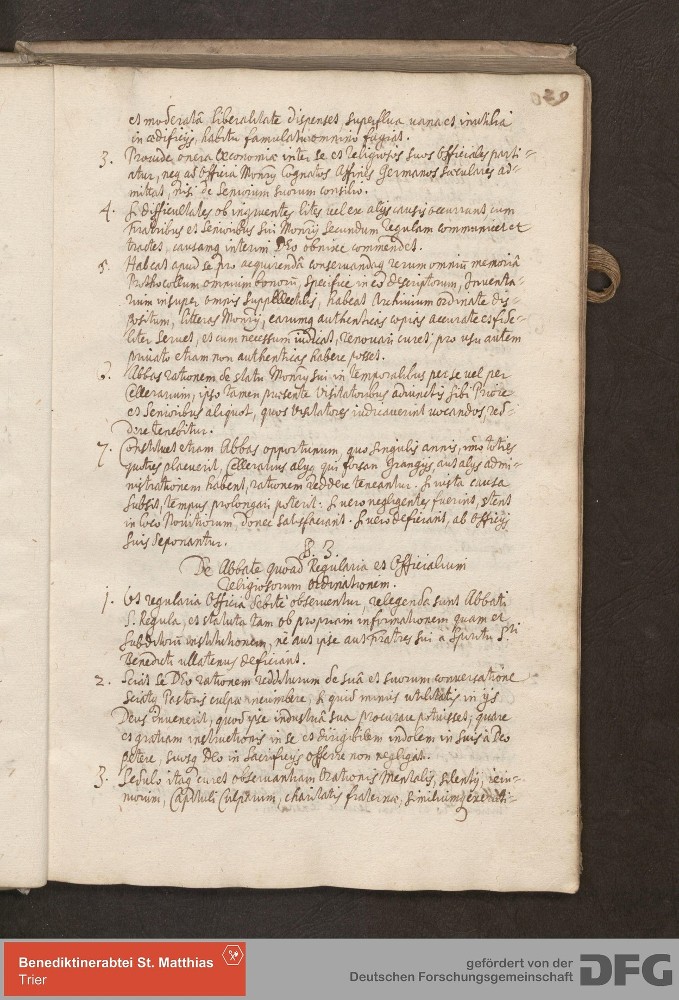 et moderatâ liberalitate dispenset, superflua vana et inutilia
in œdificijs, habitu famulatu omnino fugiat.
3. Provide opera Œconomiæ inter se et religiosos suos Officiales parti-
atur, neq ad Officia Monrij Cognatos Affines Germanos sæculares ad-
mittat, nisi de Seniorum suorum consilio.
4. Si difficultates ob ingruentes lites vel ex alijs causis occurrant, cum
Fratribus et Senioribus sui Monrij secundum Regulam communicet et
tractet, causamq interim Deo obnixe commendet.
5. Habeat apud se pro acquirendâ conservandaq rerum omniũ memoriâ
Prothocollum omnium bonorũ, specifice in eo descriptorum, Inventa-
rium insuper omnis Supellectilis, habeat Archivium ordinate dis-
positum, litteras Monrij, earumq authenticas copias accurate et fide-
liter servet, et cum necessum iudicat, renovari curet: pro usu autem
privato etiam non authenticas habere posset.
6. Abbas rationem de statu Monrij sui in temporalibus per se vel per
Cellerarium, ipso tamen præsente Visitatoribus adiunctis sibi Priore
et Senioribus aliquot, quos Visitatores iudicaverint vocandos, red-
dere tenebitur.
7. Constituet etiam Abbas opportunum, quo singulis annis, imo toties
quoties placuerit, Cellerarius alijq qui forsan Grangijs aut alijs admi-
nistrationem habent, rationem reddere teneantur. Si iusta causa
subsit, tempus prolongari poterit. Si vero negligentes fuerint, stent
in loco Novitiorum, donec satisfaciant. Si vero deficiant, ab Officijs
suis deponantur.
§. 3.
De Abbate quoad Regularia et Officialium
Religiosorum Ordinationem.
1. Ut regularia Officia debite observentur, relegenda sunt Abbati
S. Regula, et statuta tam ob propriam informationem quam et
subditorũ institutionem, ne aut ipse aut Fratres sui a Spiritu S.ti
Benedicti ullatenus deficiant.
2. Sciat se Deo rationem redditurum de suâ et suorum conversatione
Sciatq Pastoris culpæ incumbere, si quid minus utilitatis in ijs
Deus invenerit, quod ipse industriâ sua procurare potuisset; quare
et gratiam instructionis in se et dirigibilem indolem in suis a Deo
petere, suosq Deo in Sacrificijs offerre non negligat.
3. Sedulo itaq curet observantiam Orationis Mentalis, silentij, ieiu-
niorum, Capituli Culparum, charitatis fraternæ, similiumq exerciti-
Benediktinerabtei St. Matthias
Trier
gefördert von der
Deutschen Forschungsgemeinschaft
DFG